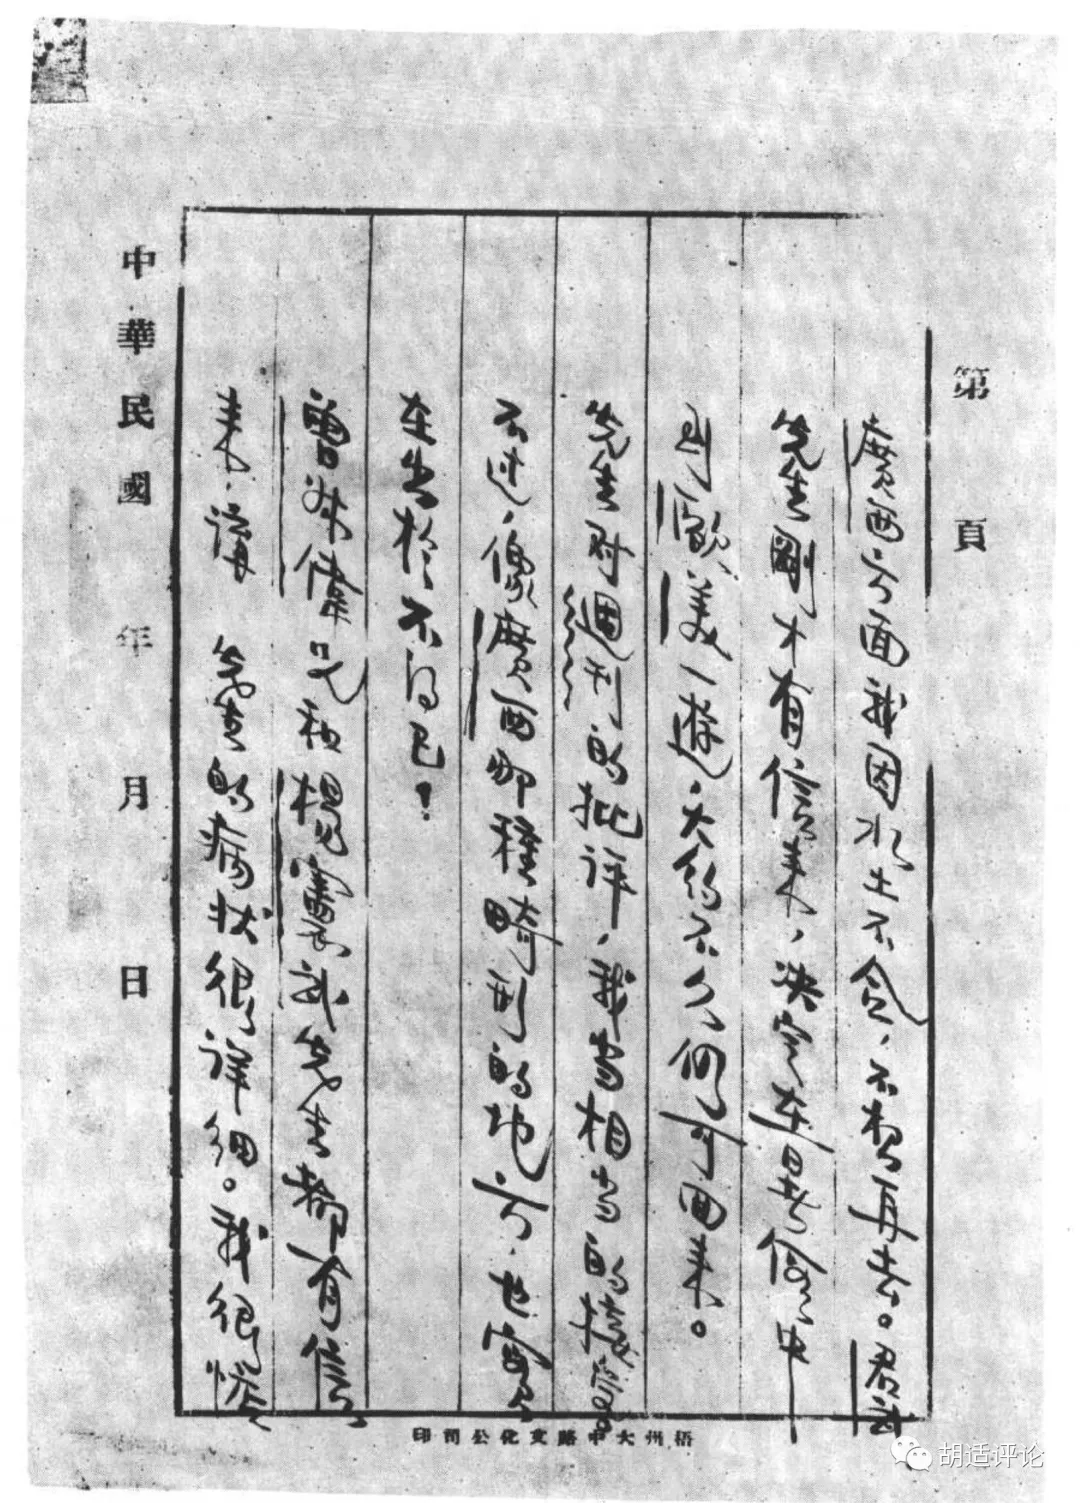 第 頁
廣西方面我因水土不合、不想再去。君武
先生剛才有信來、決定在暑假中
到歐美一遊、大約不久仍可回來。
先生對週刊的批評、我當相當的接受。
不过、像廣西那種畸形的地方、也實
在出於不得已！
曾作偉兄和楊憲武先生都有信
來、講 先生的病狀很詳細。我很
中華民國 年 月 日
梧州大中路文化公司印
胡适评论